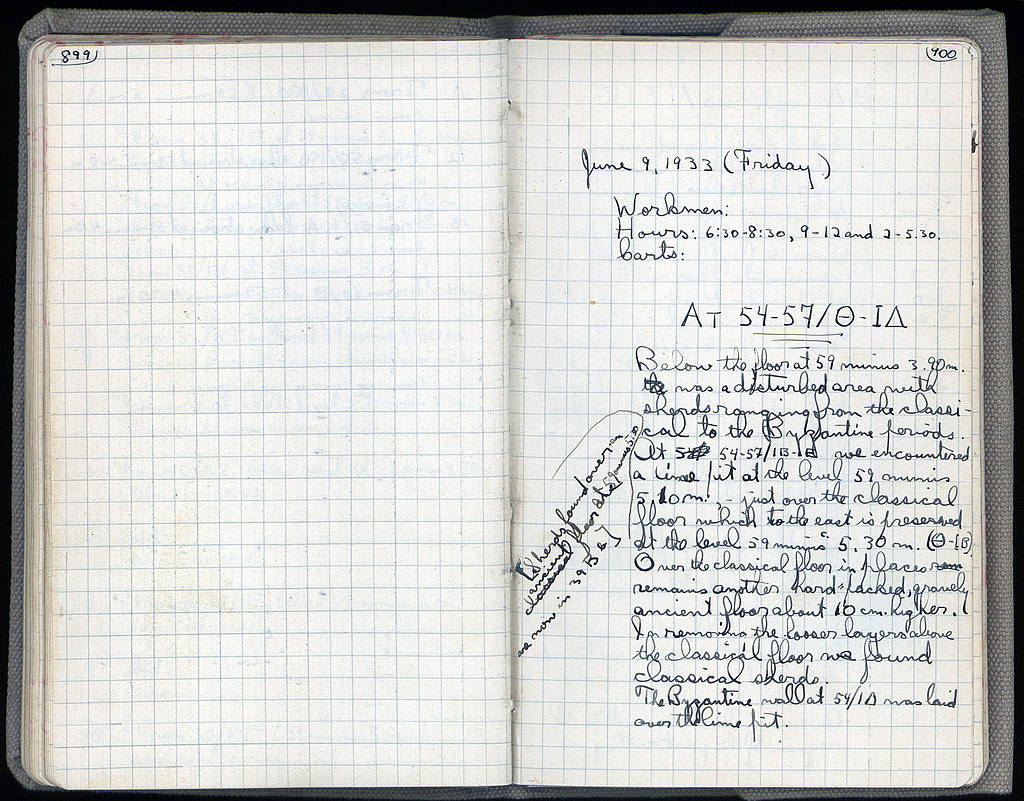 899
900
June 9, 1933 (Friday)
Workmen:
Hours: 6:30-8:30, 9-12 and 2-5.30.
Carts:
AT 54-57/Θ-ΙΔ
Below the floor at 59 minus 3.90m.
was a disturbed area with
sherds ranging from the classi-
cal to the Byzantine periods.
At 54-57/ΙΒ-ΙΔ we encountered
a lime pit at the level 59 minus
5.10m. - just over the classical
floor which to the east is preserved
at the level 59 minus 5.30m. (Θ-ΙΒ)
Over the classical floor in places
remains another hard-packed, gravely
ancient floor about 10 cm. higher.
In removing the looser layers above
the classical floor we found
classical sherds.
The Byzantine wall at 54/ΙΔ was laid
over the lime pit.
[Sherds found over
ancient floor at 59 minus 5.30
are now in 39 B 6]